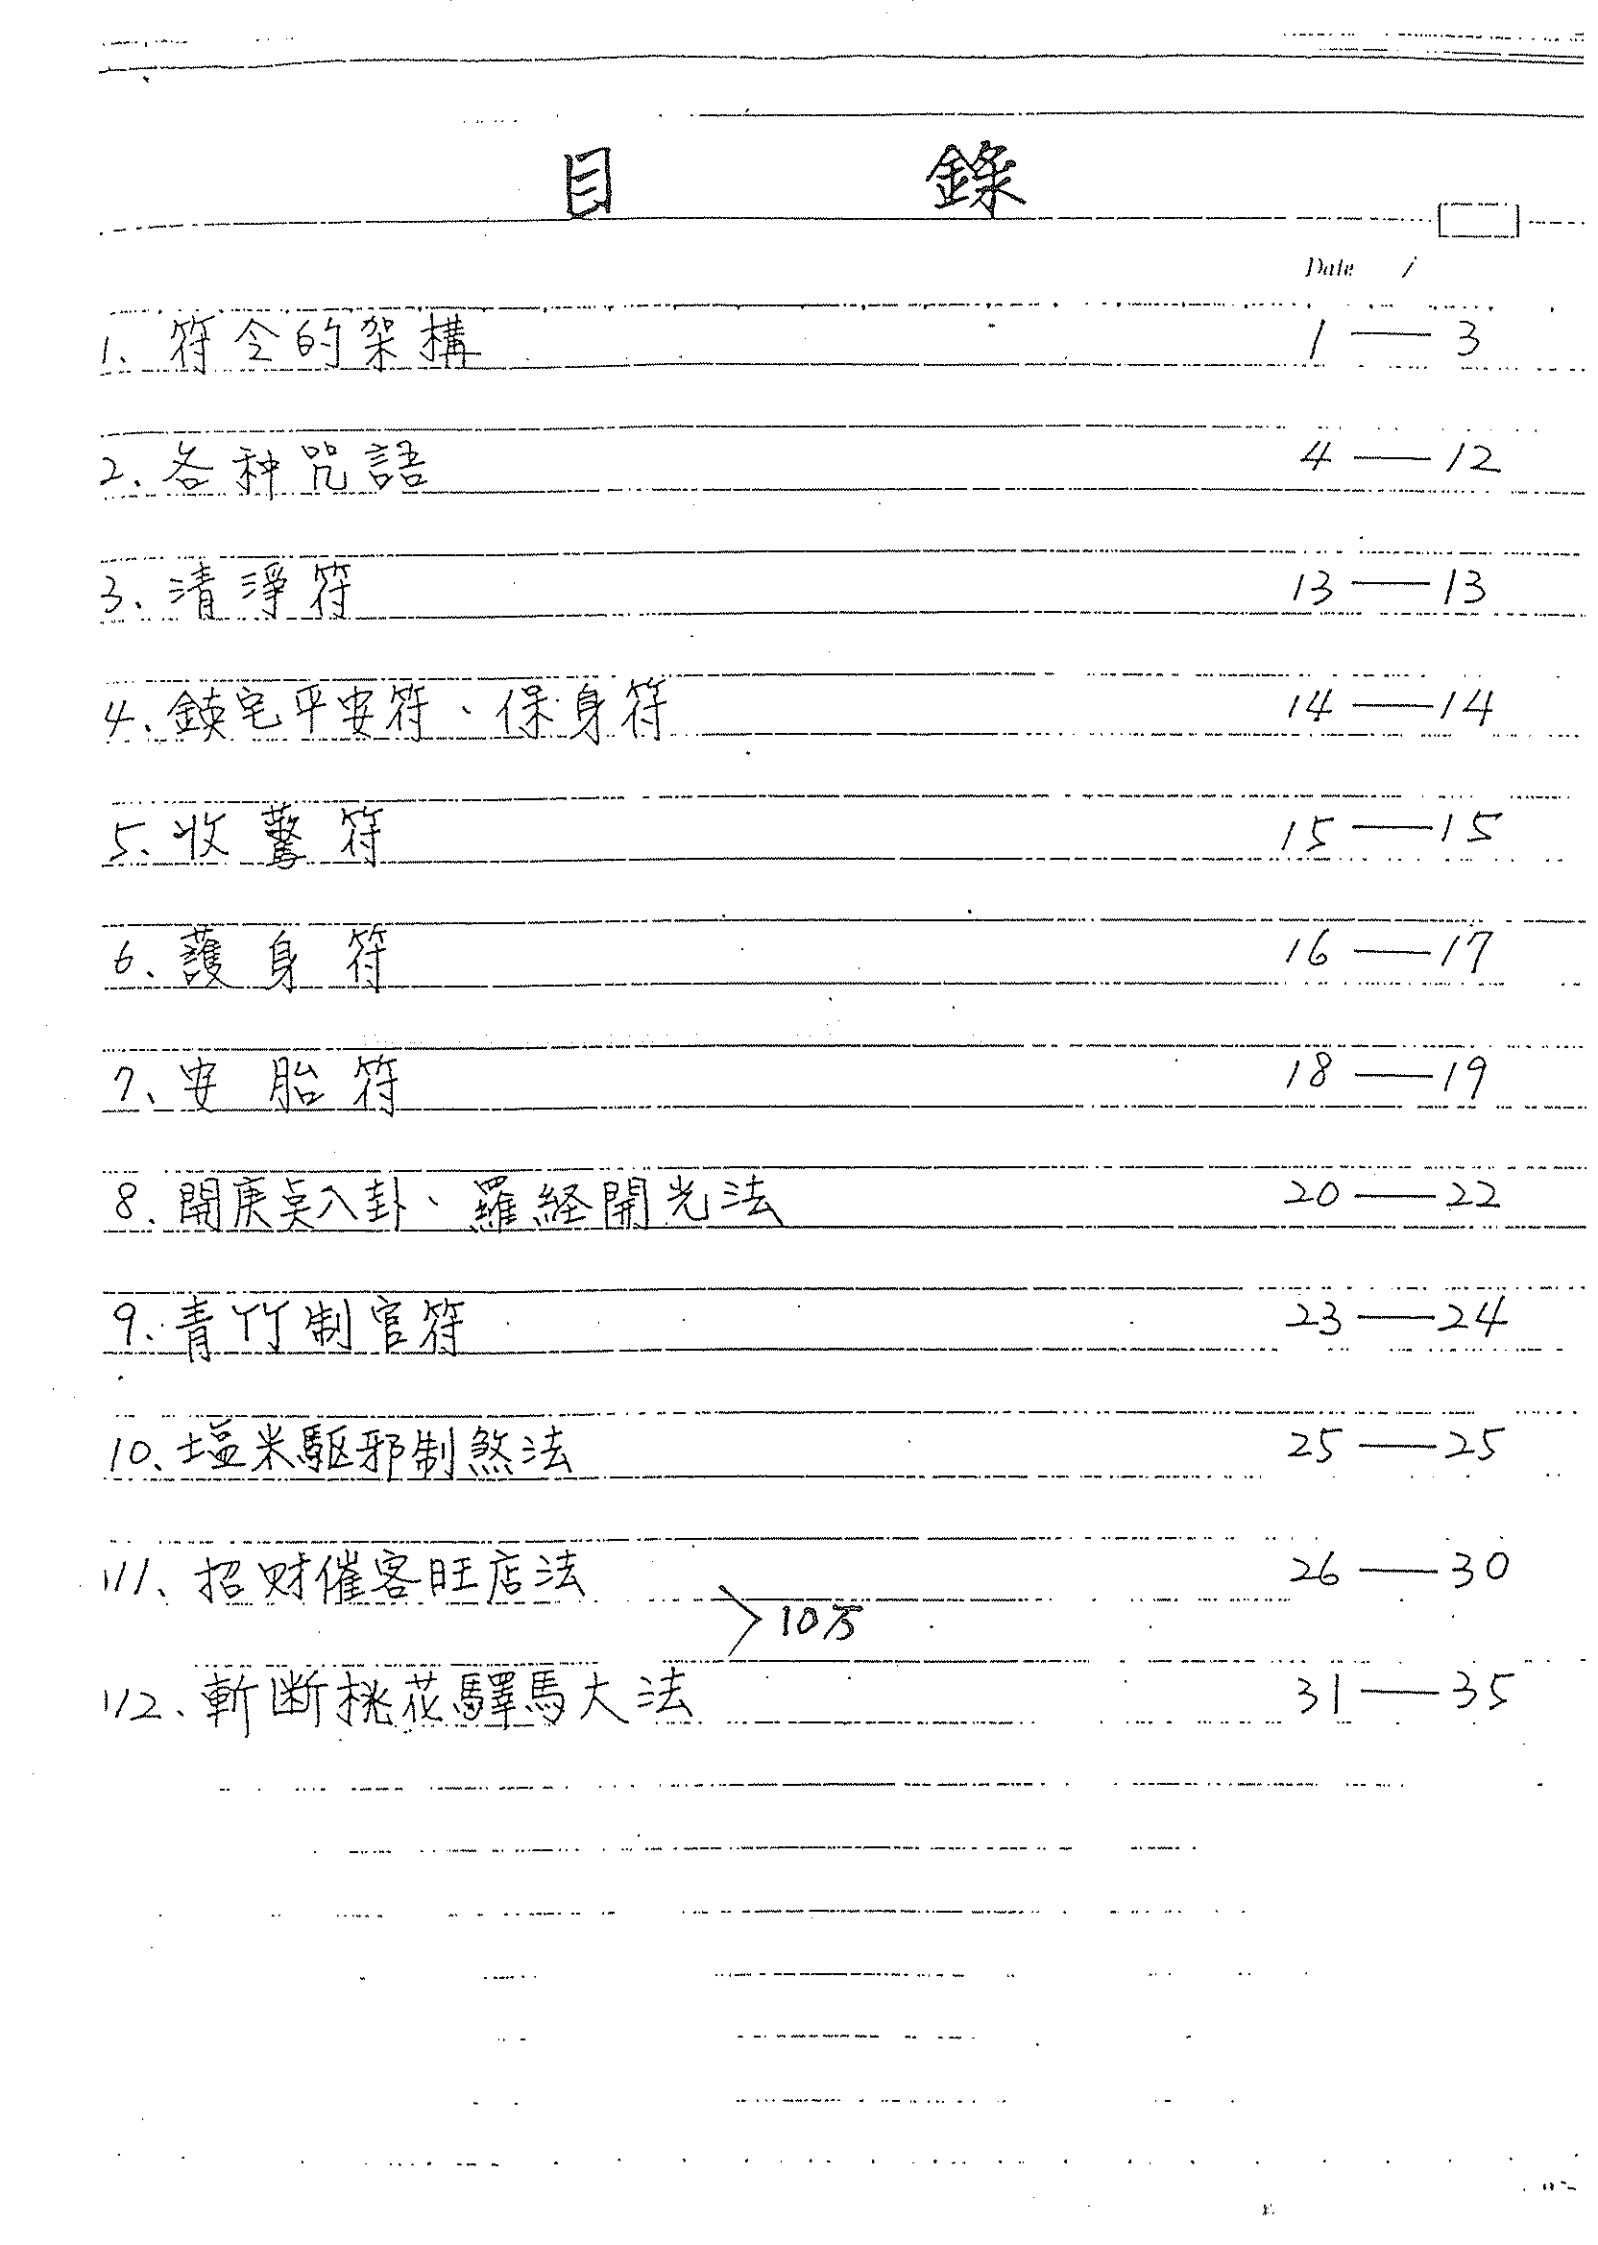 目 錄
Date /
1、符令的架構 1——3
2、各种咒語 4——12
3、清淨符 13——13
4、鎮宅平安符、保身符 14——14
5、收驚符 15——15
6、護身符 16——17
7、安胎符 18——19
8、開庚吳八卦、羅経開光法 20——22
9、青竹制官符 23——24
10、塩米驅邪制煞法 25——25
11、招财催客旺店法 26——30
10万
12、斬断桃花驛馬大法 31——35